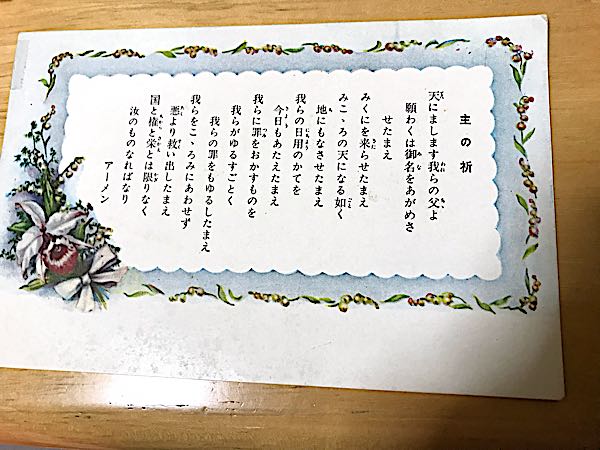 主の祈
天にまします我らの父よ
願わくは御名をあがめさ
せたまえ
みくにを来らせたまえ
みこゝろの天になる如く
地にもなさせたまえ
我らの日用のかてを
今日もあたえたまえ
我らに罪をおかすものを
我らがゆるすごとく
我らの罪をもゆるしたまえ
我らをこゝろみにあわせず
悪より救い出したまえ
国と権と栄とは限りなく
汝のものなればなり
アーメン